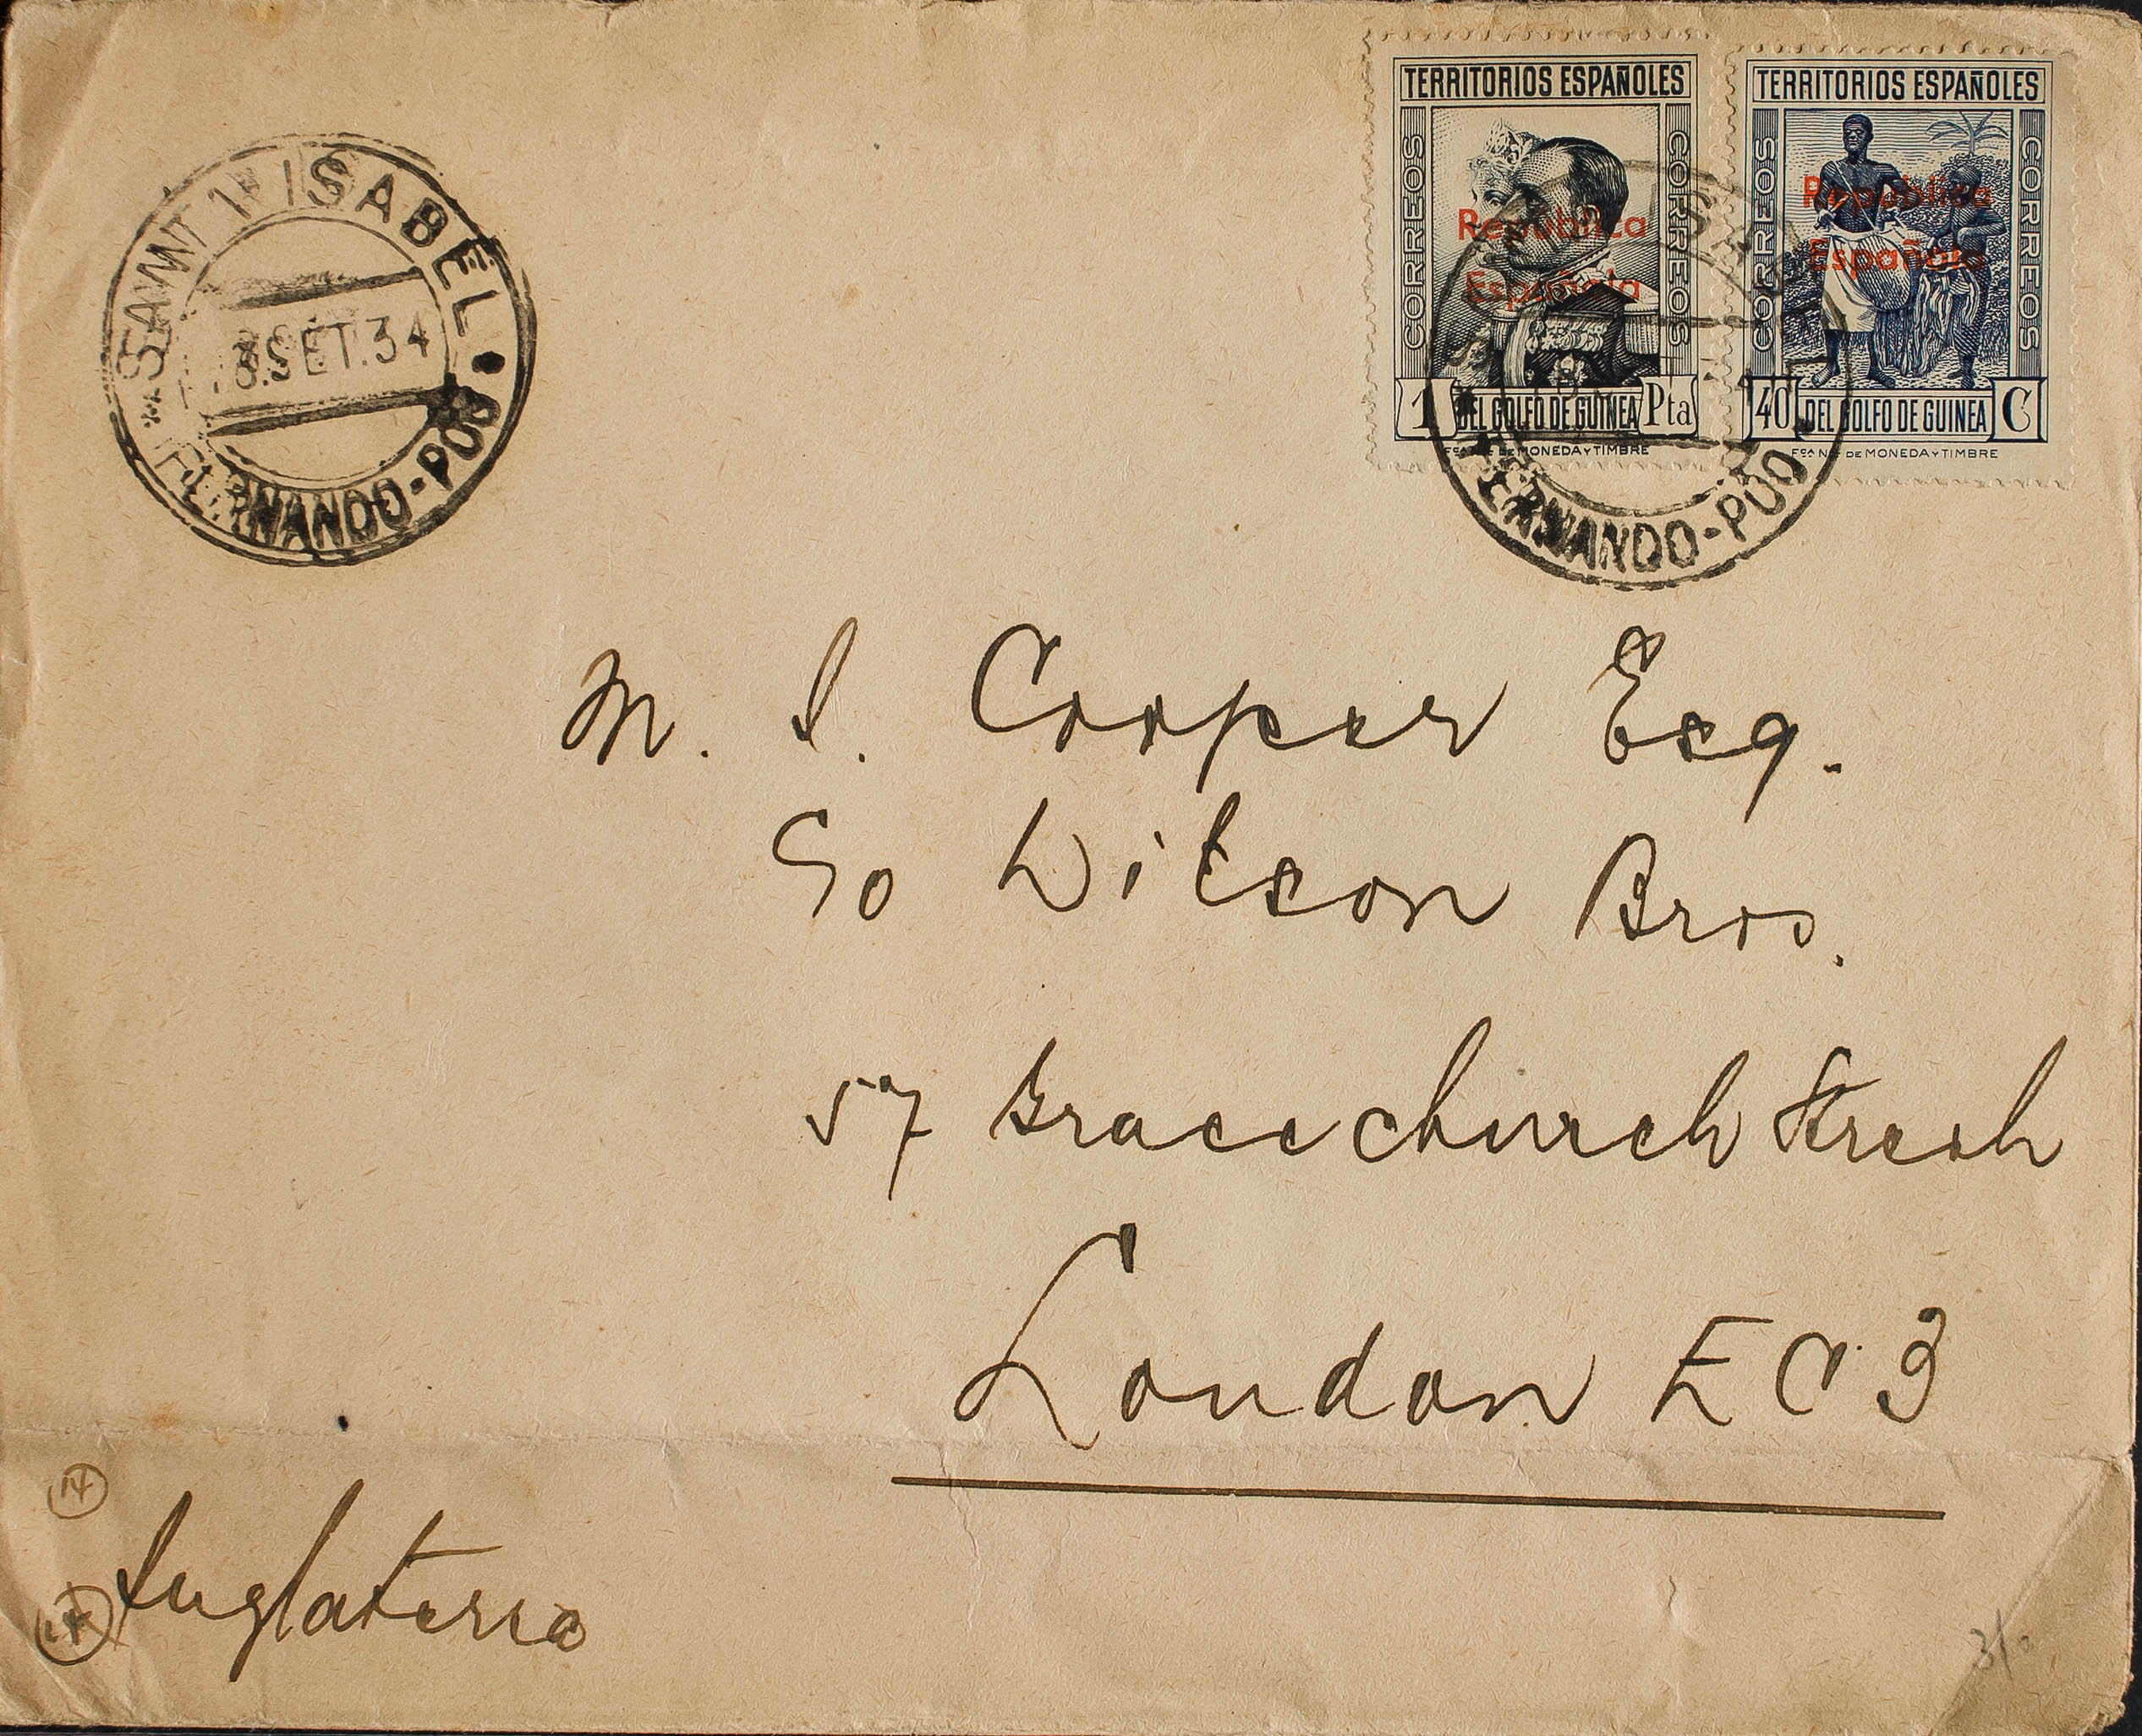 TERRITORIOS ESPAÑOLES
CORREOS
CORREOS
República
Española
1 DEL GOLFO DE GUINEA Pta
FCA NAL DE MONEDA Y TIMBRE
TERRITORIOS ESPAÑOLES
CORREOS
CORREOS
República
Española
40 DEL GOLFO DE GUINEA C
FCA NAL DE MONEDA Y TIMBRE
ISABEL
SET.34
FERNANDO-POO
FERNANDO-POO
M. I. Cooper Esq.
c/o Wilson Bros.
57 Gracechurch Street
London EC3
14
Inglaterra